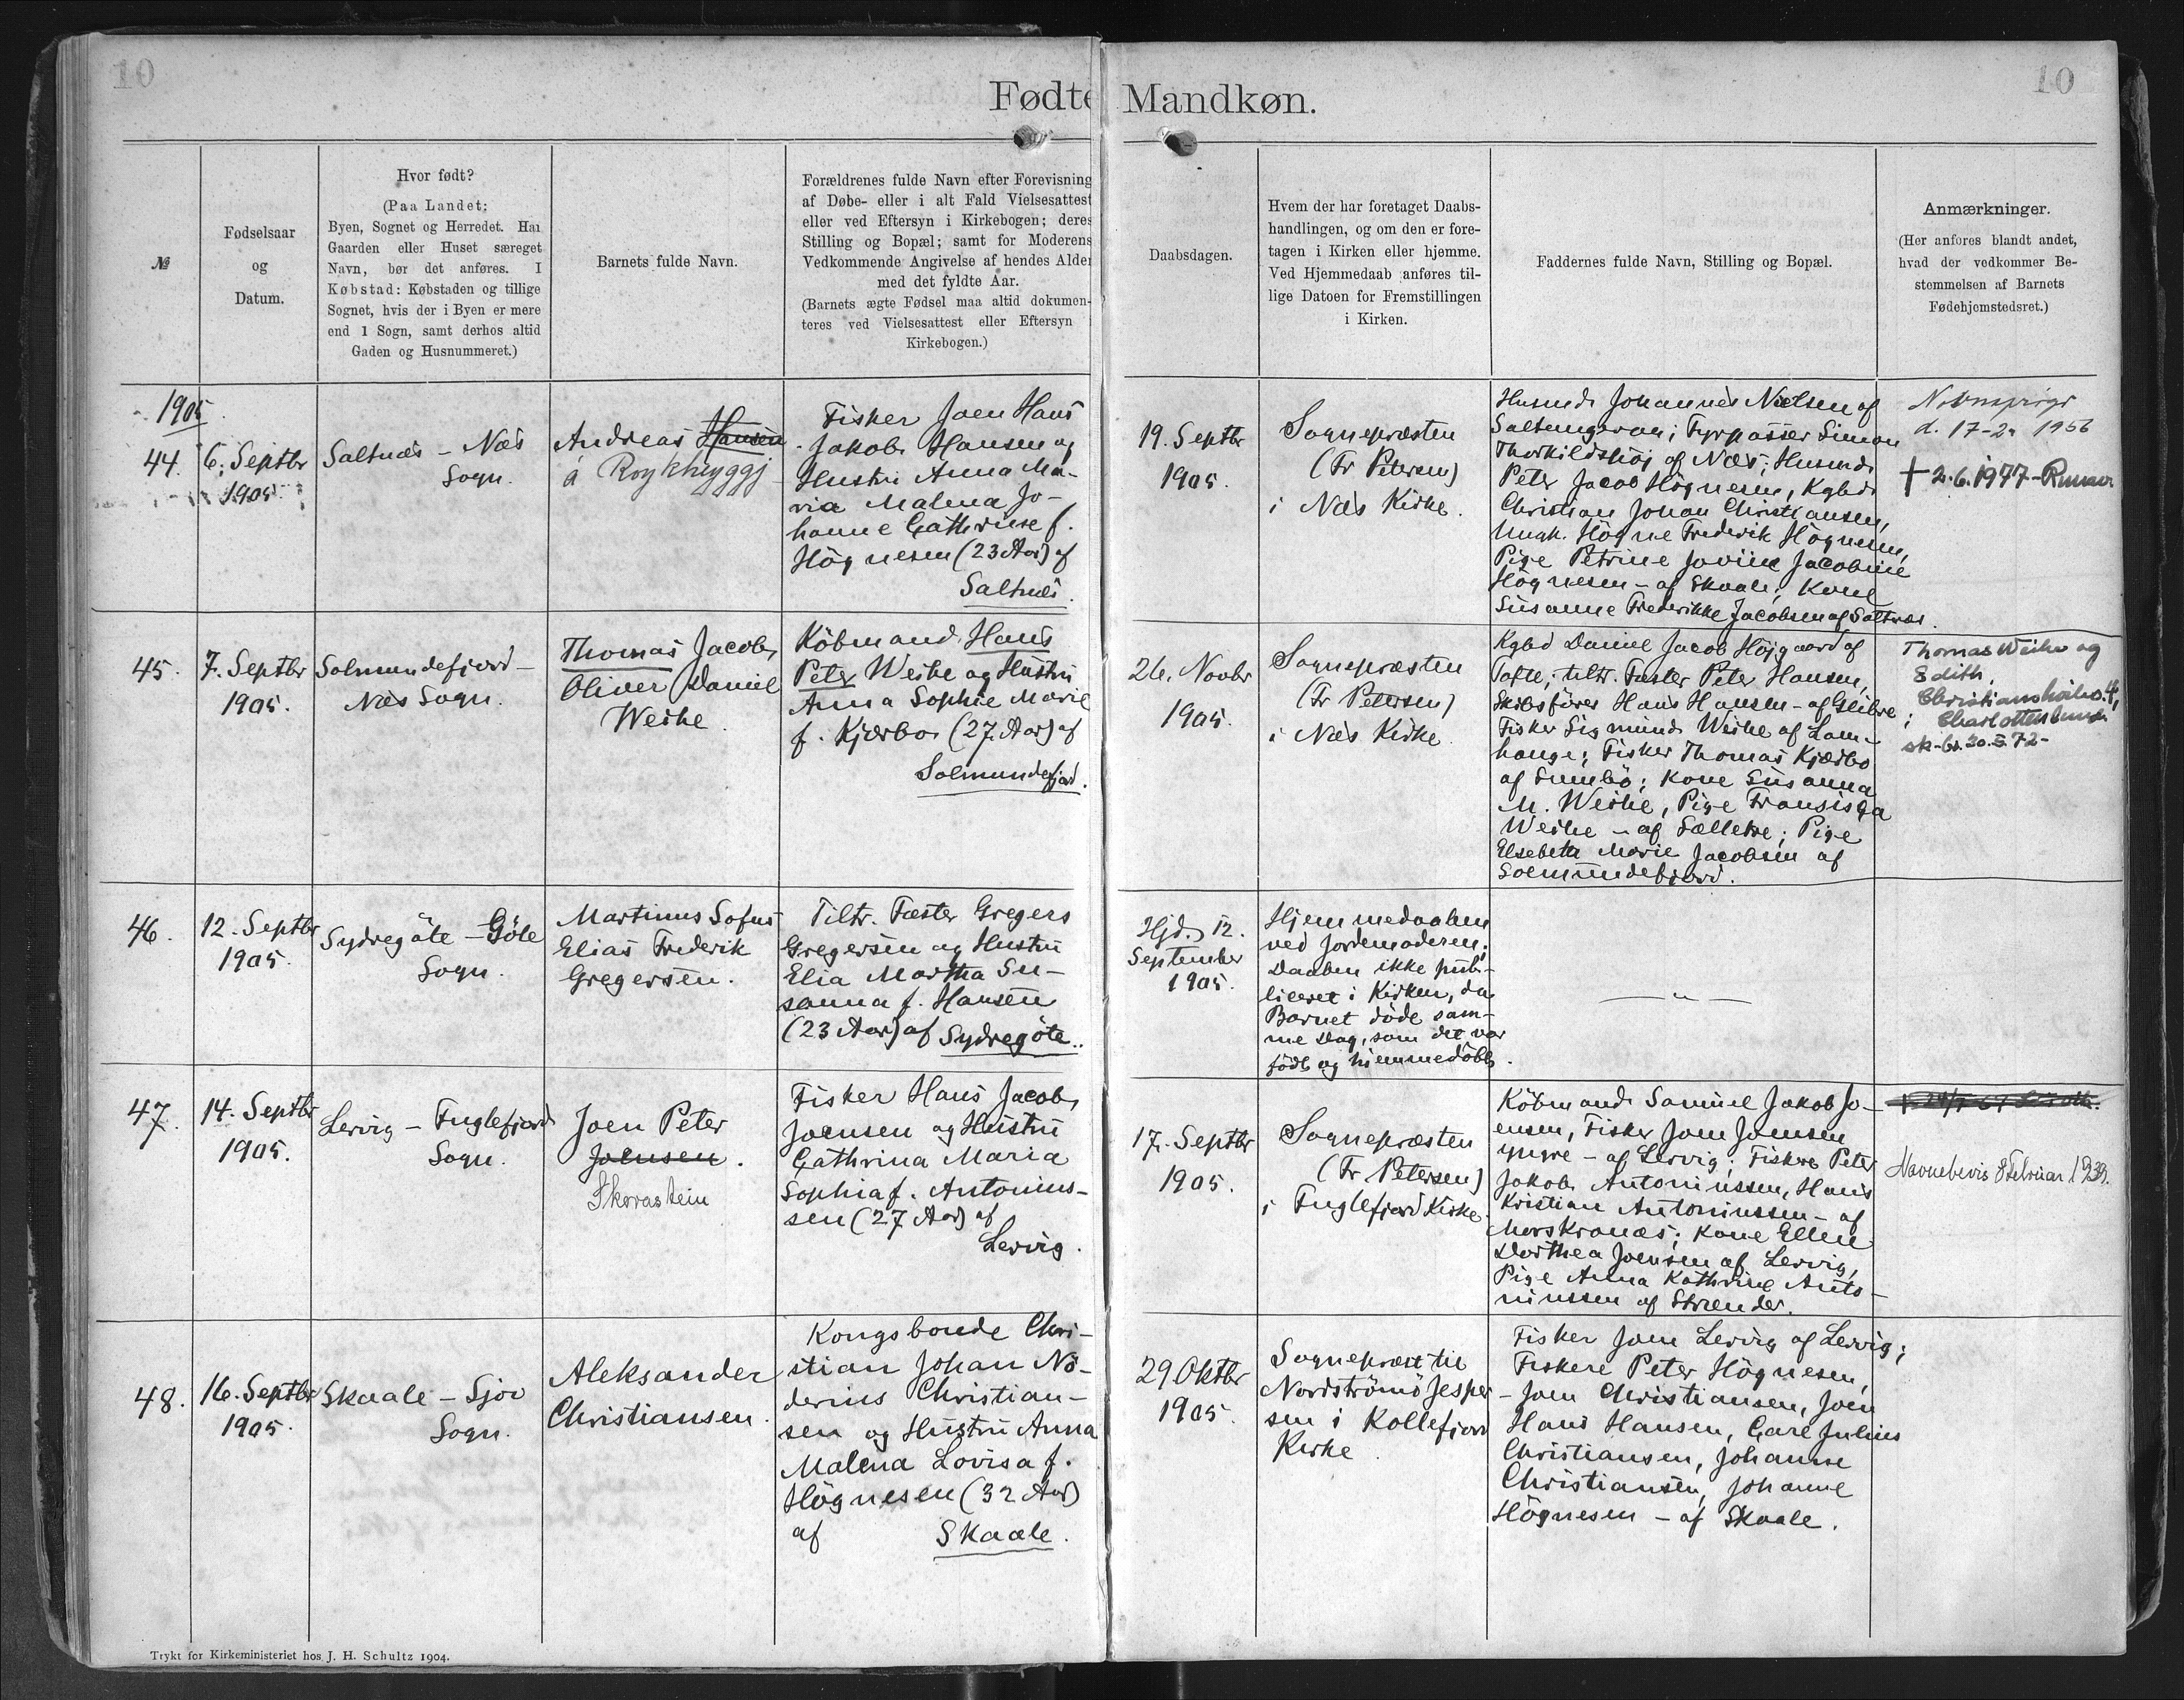 10
10
Fødte Mandkøn.
№
Fødselsaar
og
Datum.
Hvor født?
(Paa Landet:
Byen, Sognet og Herredet. Har
Gaarden eller Huset særeget
Navn, bør det anføres. I
Købstad: Købstaden og tillige
Sognet, hvis der i Byen er mere
end 1 Sogn, samt derhos altid
Gaden og Husnummeret.)
Barnets fulde Navn.
Forældrenes fulde Navn efter Forevisning
af Døbe- eller i alt Fald Vielsesattest
eller ved Eftersyn i Kirkebogen; deres
Stilling og Bopæl; samt for Moderens
Vedkommende Angivelse af hendes Alder
med det fyldte Aar.
(Barnets ægte Fødsel maa altid dokumen-
teres ved Vielsesattest eller Eftersyn i
Kirkebogen.)
Daabsdagen.
Hvem der har foretaget Daabs-
handlingen, og om den er fore-
tagen i Kirken eller hjemme.
Ved Hjemmedaab anføres til-
lige Datoen for Fremstillingen
i Kirken.
Faddernes fulde Navn, Stilling og Bopæl.
Anmærkninger.
(Her anføres blandt andet,
hvad der vedkommer Be-
stemmelsen af Barnets
Fødehjemstedsret.)
1905
44.
6. Septbr
1905.
Saltnæs - Næs
Sogn.
Andreas Hansen
á Roykheyggj
Fisker Joen Hans
Jakob Hansen og
Hustru Anna Ma-
ria Malena Jo-
hanne Cathrine f.
Högnesen (23 Aar) af
Saltnæs.
19. Septbr
1905.
Sognepræsten
(Fr Petersen)
i Næs Kirke.
Husmd. Johannes Nielsen af
Saltnugsvon; Fyrpasser Simon
Thorkildshöj af Næs; Husmd.
Peter Jacob Högnesen, Kgbd.
Christian Johan Christiansen,
Ungk. Högne Frederik Högnesen,
Pige Petrine Jovine Jacobine
Högnesen - af Skaale; Kone
Susanne Frederikke Jacobsen af Saltnæs.
d. 17-2 1956
† 2.6.1977-Runav.
45.
7. Septbr
1905.
Solmundefjord -
Næs Sogn.
Thomas Jacob
Oliver Daniel
Weihe.
Köbmand Hans
Peter Weihe og Hustru
Anna Sophie Marie
f. Kjærbo (27 Aar) af
Solmundefjord.
26. Novbr
1905.
Sognepræsten
(Fr Petersen)
i Næs Kirke
Kgbd Daniel Jacob Höjgaard af
Tofte; tiltr. Fæster Peter Hansen,
Skibsförer Hans Hansen - af Glibre;
Fisker Sigmund Weihe af Lam-
hauge; Fisker Thomas Kjærbo
af Sumbö; Kone Susanna
M. Weihe, Pige Fransisga
Weihe - af Sælletre; Pige
Elsebeth Marie Jacobsen af
Solmundefjord.
Thomas Weihe og
Edith,
Christiansholms. 4,
Charlottenlund
sk-br. 30.5.72-
46.
12. Septbr
1905.
Sydregöte - Göte
Sogn.
Martinus Sofus
Elias Frederik
Gregersen.
Tiltr. Fæster Gregers
Gregersen og Hustru
Elia Martha Su-
sanna f. Hansen
(23 Aar) af Sydregöte.
Hjd. 12.
September
1905.
Hjemmedaaben
ved Jordemoderen;
Daaben ikke pub-
liceret i Kirken, da
Barnet döde sam-
me Dag, som det var
födt og hjemmedöbt.
— " —
47.
14. Septbr
1905.
Lervig - Fuglefjord
Sogn.
Joen Peter
Joensen.
Skorastein
Fisker Hans Jacob
Joensen og Hustru
Cathrina Maria
Sophia f. Antonius-
sen (27 Aar) af
Lervig.
17. Septbr
1905.
Sognepræsten
(Fr. Petersen)
i Fuglefjord Kirke.
Köbmand Samuel Jakob Jo-
ensen, Fisker Joen Joensen
yngre - af Lervig; Fiskere Peter
Jakob Antoniussen, Hans
Kristian Antoniussen - af
Morskranæs; Kone Ellen
Dorthea Joensen af Lervig,
Pige Anna Kathrine Anto-
niussen af Strænder.
Navnebevis 8 Februar 1939.
48.
16. Septbr
1905.
Skaale - Sjov
Sogn.
Aleksander
Christiansen.
Kongsbonde Chri-
stian Johan No-
derius Christian-
sen og Hustru Anna
Malena Lovisa f.
Högnesen (32 Aar)
af Skaale.
29 Oktbr
1905.
Sognepræst til
Nordströmö Jesper-
sen i Kollefjord
Kirke.
Fisker Joen Lervig af Lervig;
Fiskere Peter Högnesen,
- Joen Christiansen, Joen
Hans Hansen, Carl Julius
Christiansen, Johanne
Christiansen, Johanne
Högnesen - af Skaale.
Trykt for Kirkeministeriet hos J. H. Schultz 1904.